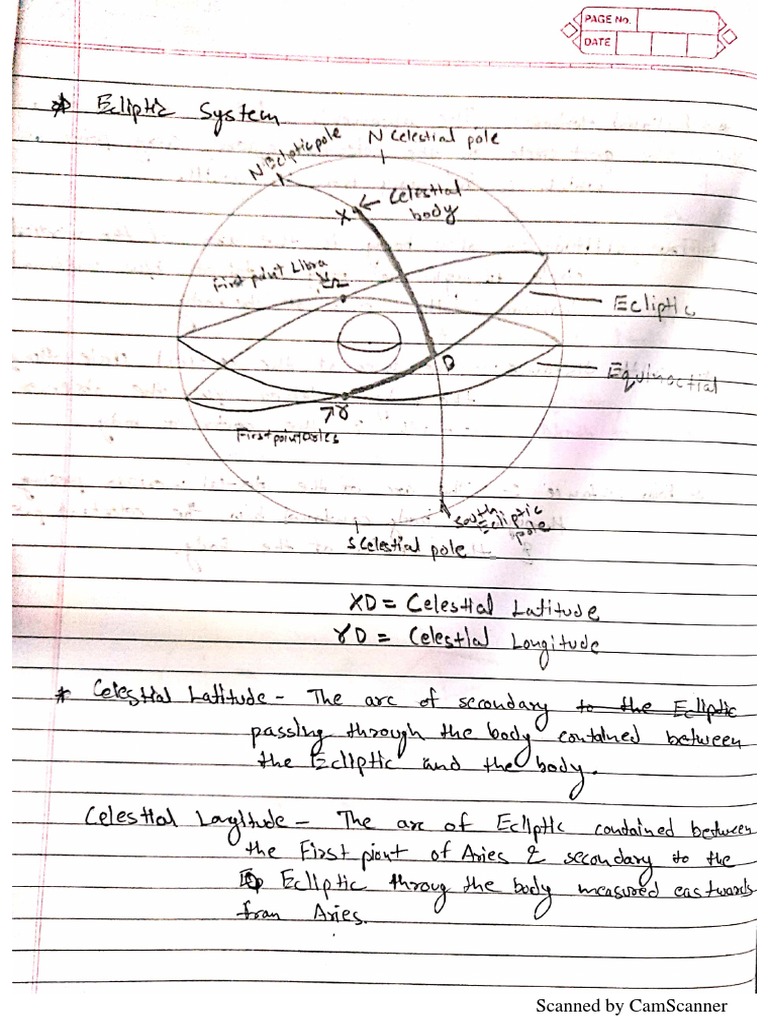 PAGE No.
DATE
* Ecliptic System
N Ecliptic pole
N Celestial pole
X ← Celestial
body
First point Libra
♎
Ecliptic
D
Equinoctial
↗♈
First point Aries
South
Ecliptic
pole
S Celestial pole
XD = Celestial Latitude
♈D = Celestial Longitude
* Celestial Latitude - The arc of secondary to the Ecliptic
passing through the body contained between
the Ecliptic and the body.
Celestial Longitude - The arc of Ecliptic contained between
the First piont of Aries & secondary to the
Ecliptic throug the body measured eastwards
from Aries.
Scanned by CamScanner